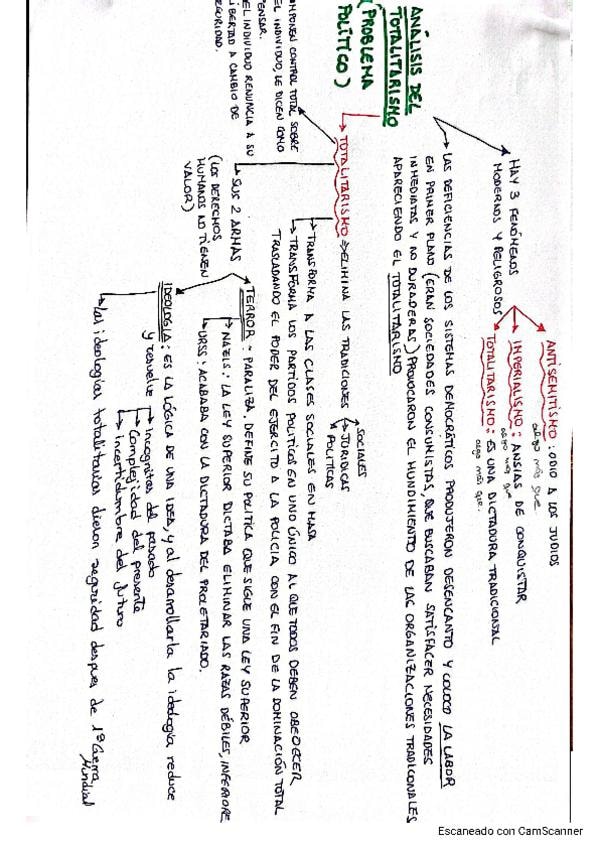 ANÁLISIS DEL
TOTALITARISMO
(PROBLEMA
POLÍTICO)
HAY 3 FENÓMENOS
MODERNOS Y PELIGROSOS
ANTISEMITISMO: ODIO A LOS JUDIOS
algo más que
IMPERIALISMO: ANSIAS DE CONQUISTAR
algo más que
TOTALITARISMO: ES UNA DICTADURA TRADICIONAL
algo más que.
LAS DEFICIENCIAS DE LOS SISTEMAS DEMOCRÁTICOS PRODUJERON DESENCANTO Y COLOCÓ LA LABOR
EN PRIMER PLANO (ERAN SOCIEDADES CONSUMISTAS, QUE BUSCABAN SATISFACER NECESIDADES
INMEDIATAS Y NO DURADERAS) PROVOCARON EL HUNDIMIENTO DE LAS ORGANIZACIONES TRADICIONALES
APARECIENDO EL TOTALITARISMO
TOTALITARISMO => ELIMINA LAS TRADICIONES
SOCIALES
JURIDICAS
POLITICAS
TRANSFORMA A LAS CLASES SOCIALES EN MASA
TRANSFORMA LOS PARTIDOS POLITICOS EN UNO ÚNICO AL QUE TODOS DEBEN OBEDECER
TRASLADANDO EL PODER DEL EJERCITO A LA POLICIA CON EL FIN DE LA DOMINACIÓN TOTAL
IMPONEN CONTROL TOTAL SOBRE
EL INDIVIDUO, LE DICEN COMO
PENSAR.
EL INDIVIDUO RENUNCIA A SU
LIBERTAD A CAMBIO DE
SEGURIDAD.
SUS 2 ARMAS
(LOS DERECHOS
HUMANOS NO TIENEN
VALOR)
TERROR: PARALIZA, DEFINE SU POLÍTICA QUE SIGUE UNA LEY SUPERIOR
NAZIS: LA LEY SUPERIOR DICTABA ELIMINAR LAS RAZAS DÉBILES, INFERIORE
URSS: ACABABA CON LA DICTADURA DEL PROLETARIADO.
IDEOLOGIA: ES LA LÓGICA DE UNA IDEA, y al desarrollarla la ideología reduce
y resuelve
incognitas del pasado
Complejidad del presente
incertidumbre del futuro
las ideologías totalitarias dieron seguridad despues de 1ª Guerra
Mundial
Escaneado con CamScanner